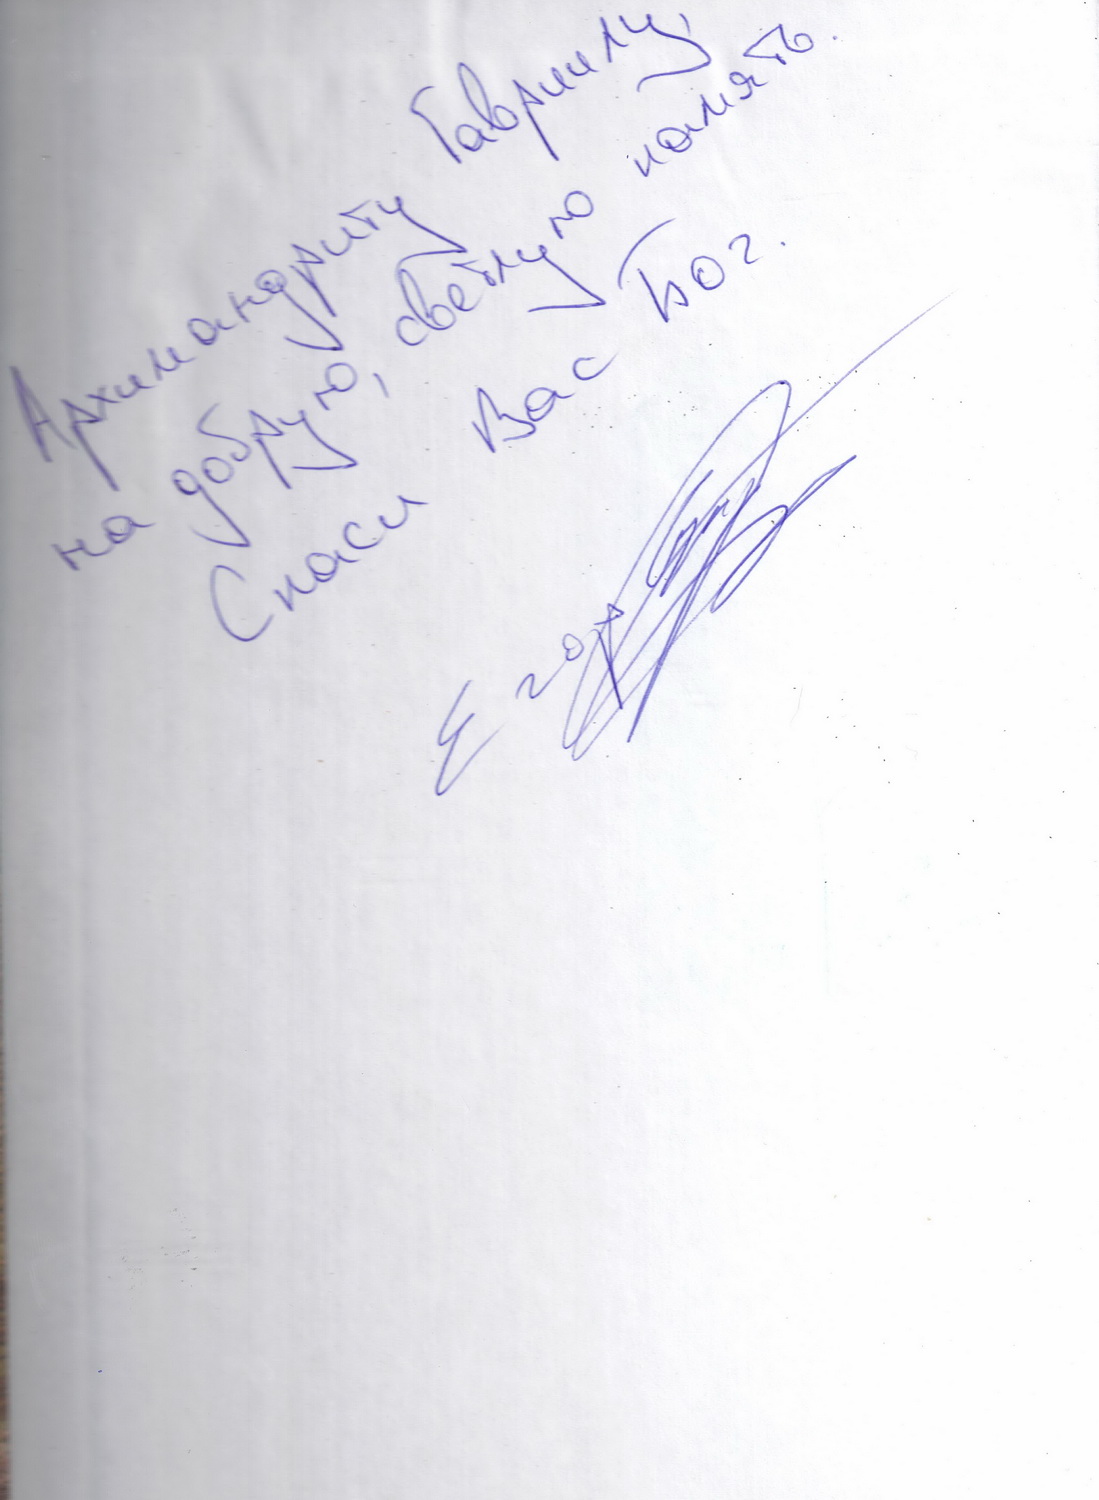 Архимандриту Гавриилу,
на добрую, светлую память.
Спаси Вас Бог.